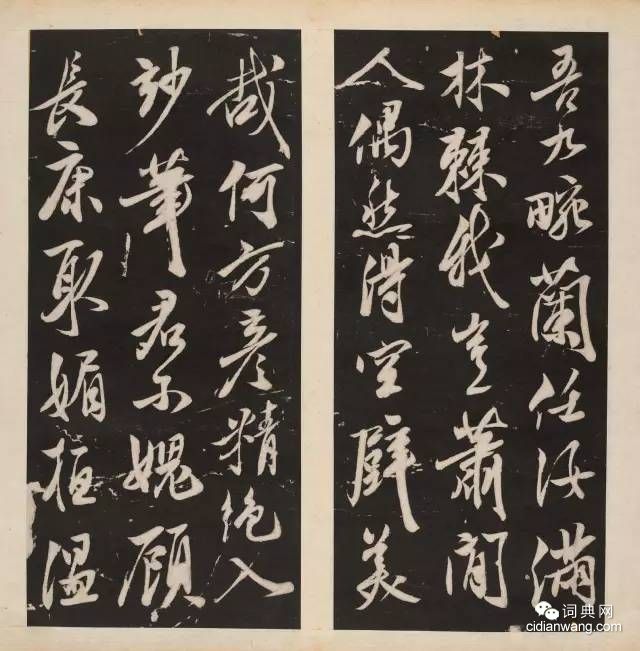 吾九畹蘭任汝滿
林棘我豈蕭閒
人偶然得空美
哉何方彥精絶入
妙筆君不媿顧
長康取媚桓溫
词典网
cidianwang.com